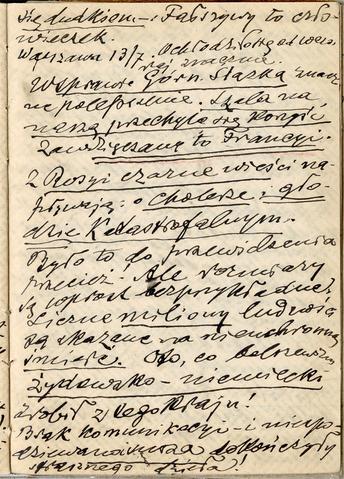 się ludkiem – Fałszywy to czło-
wieczek.
Warszawa 13/7. Ochłodziło się od wczo-
raj znacznie.
W sprawie Górn. Śląska znacz-
ne polepszenie. Szala na
naszą przechyla się korzyść
Zawdzięczamy to Francyi.
Z Rosyi czarne wieści na-
pływają: o cholerze i gło-
dzie katastrofalnym.
Było to do przewidzenia
przecież! Ale rozmiary
są wprost bezprzykładne!
Liczne miliony ludności
są skazane na nieuchronną
śmierć. Oto, co bolszewizm
żydowsko – niemiecki
zrobił z tego kraju!
Brak komunikacyi – i
dokończyły
strasznego dzieła!